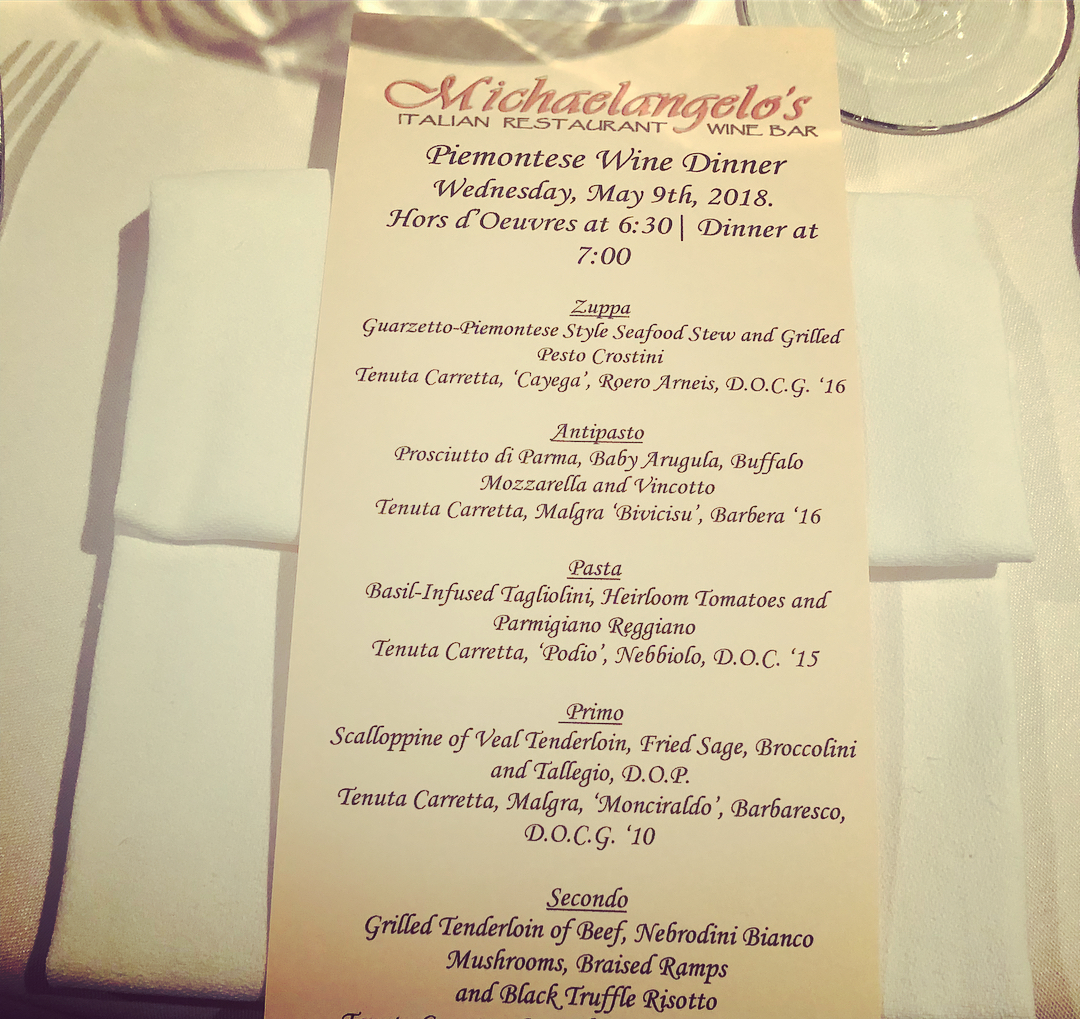 Michaelangelo's
ITALIAN RESTAURANT WINE BAR
Piemontese Wine Dinner
Wednesday, May 9th, 2018.
Hors d'Oeuvres at 6:30| Dinner at
7:00
Zuppa
Guarzetto-Piemontese Style Seafood Stew and Grilled
Pesto Crostini
Tenuta Carretta, ‘Cayega’, Roero Arneis, D.O.C.G. ‘16
Antipasto
Prosciutto di Parma, Baby Arugula, Buffalo
Mozzarella and Vincotto
Tenuta Carretta, Malgra ‘Bivicisu’, Barbera ‘16
Pasta
Basil-Infused Tagliolini, Heirloom Tomatoes and
Parmigiano Reggiano
Tenuta Carretta, ‘Podio’, Nebbiolo, D.O.C. ‘15
Primo
Scalloppine of Veal Tenderloin, Fried Sage, Broccolini
and Tallegio, D.O.P.
Tenuta Carretta, Malgra, ‘Monciraldo’, Barbaresco,
D.O.C.G. ‘10
Secondo
Grilled Tenderloin of Beef, Nebrodini Bianco
Mushrooms, Braised Ramps
and Black Truffle Risotto